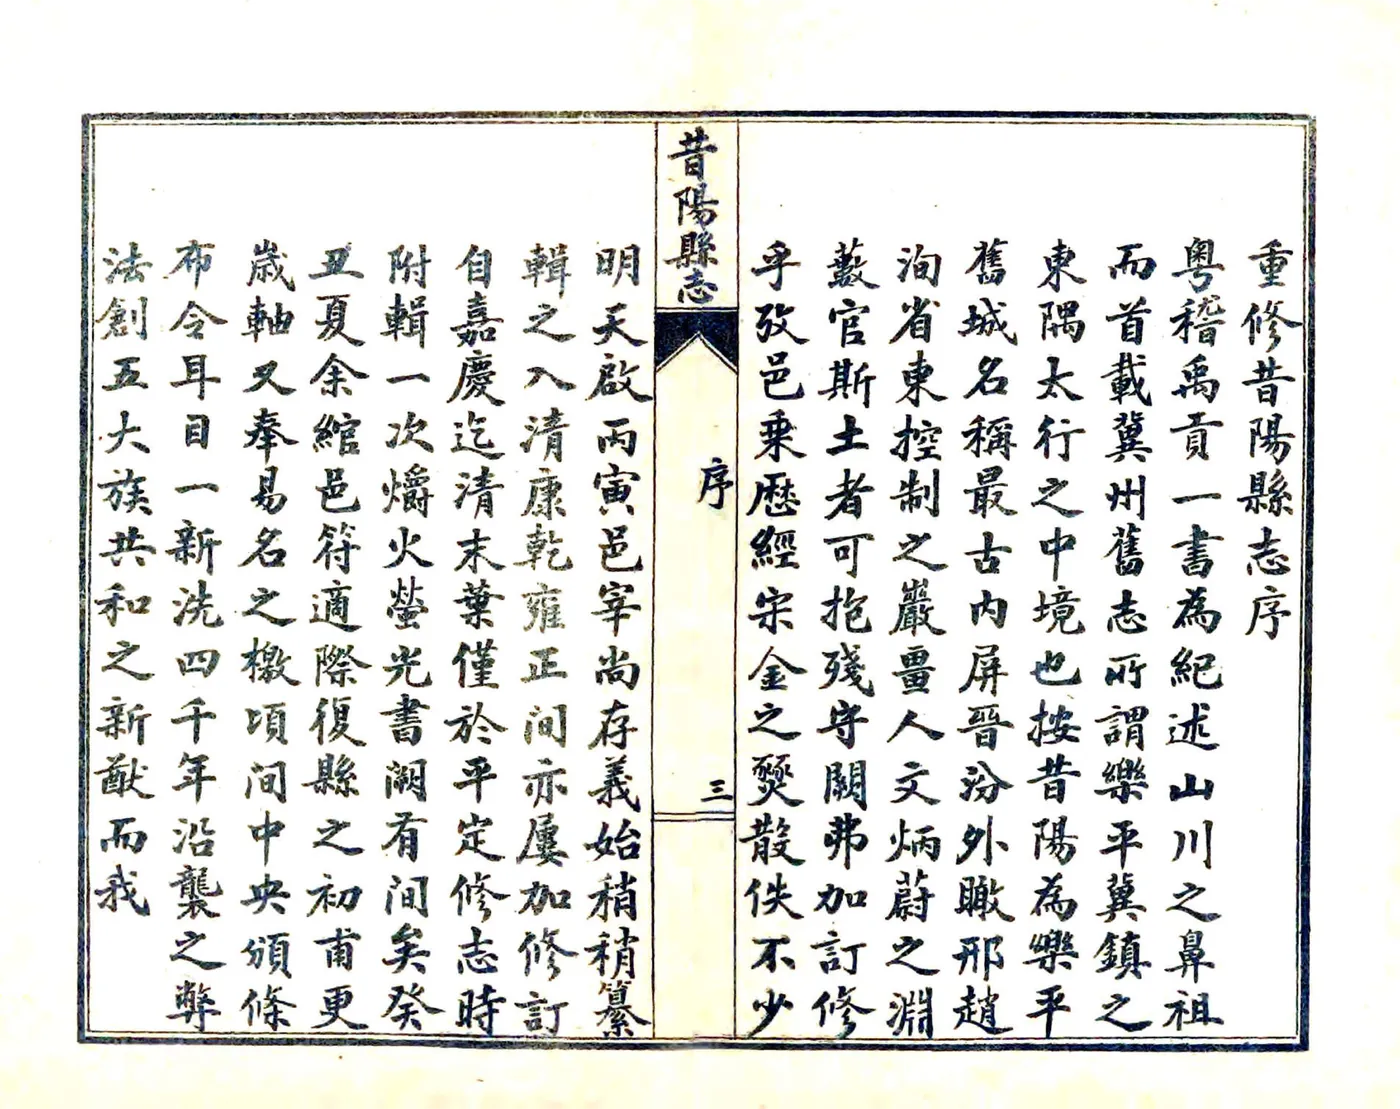 重修昔陽縣志序
粤稽禹貢一書為紀述山川之鼻祖
而首載冀州舊志所謂樂平冀鎮之
東隅太行之中境也按昔陽為樂平
舊城名稱最古内屏晉汾外瞰邢趙
洵省東控制之巖畺人文炳蔚之淵
藪官斯土者可抱殘守闕弗加訂修
乎攷邑乘歷經宋金之燹散佚不少
昔陽縣志
序
三
明天啟丙寅邑宰尚存義始稍稍纂
輯之入清康乾雍正间亦屢加修訂
自嘉慶迄清末葉僅於平定修志時
附輯一次爝火螢光書闕有间矣癸
丑夏余綰邑符適際復縣之初甫更
歲軸又奉易名之檄頃间中央頒條
布令耳目一新洗四千年沿襲之弊
法創五大族共和之新猷而我